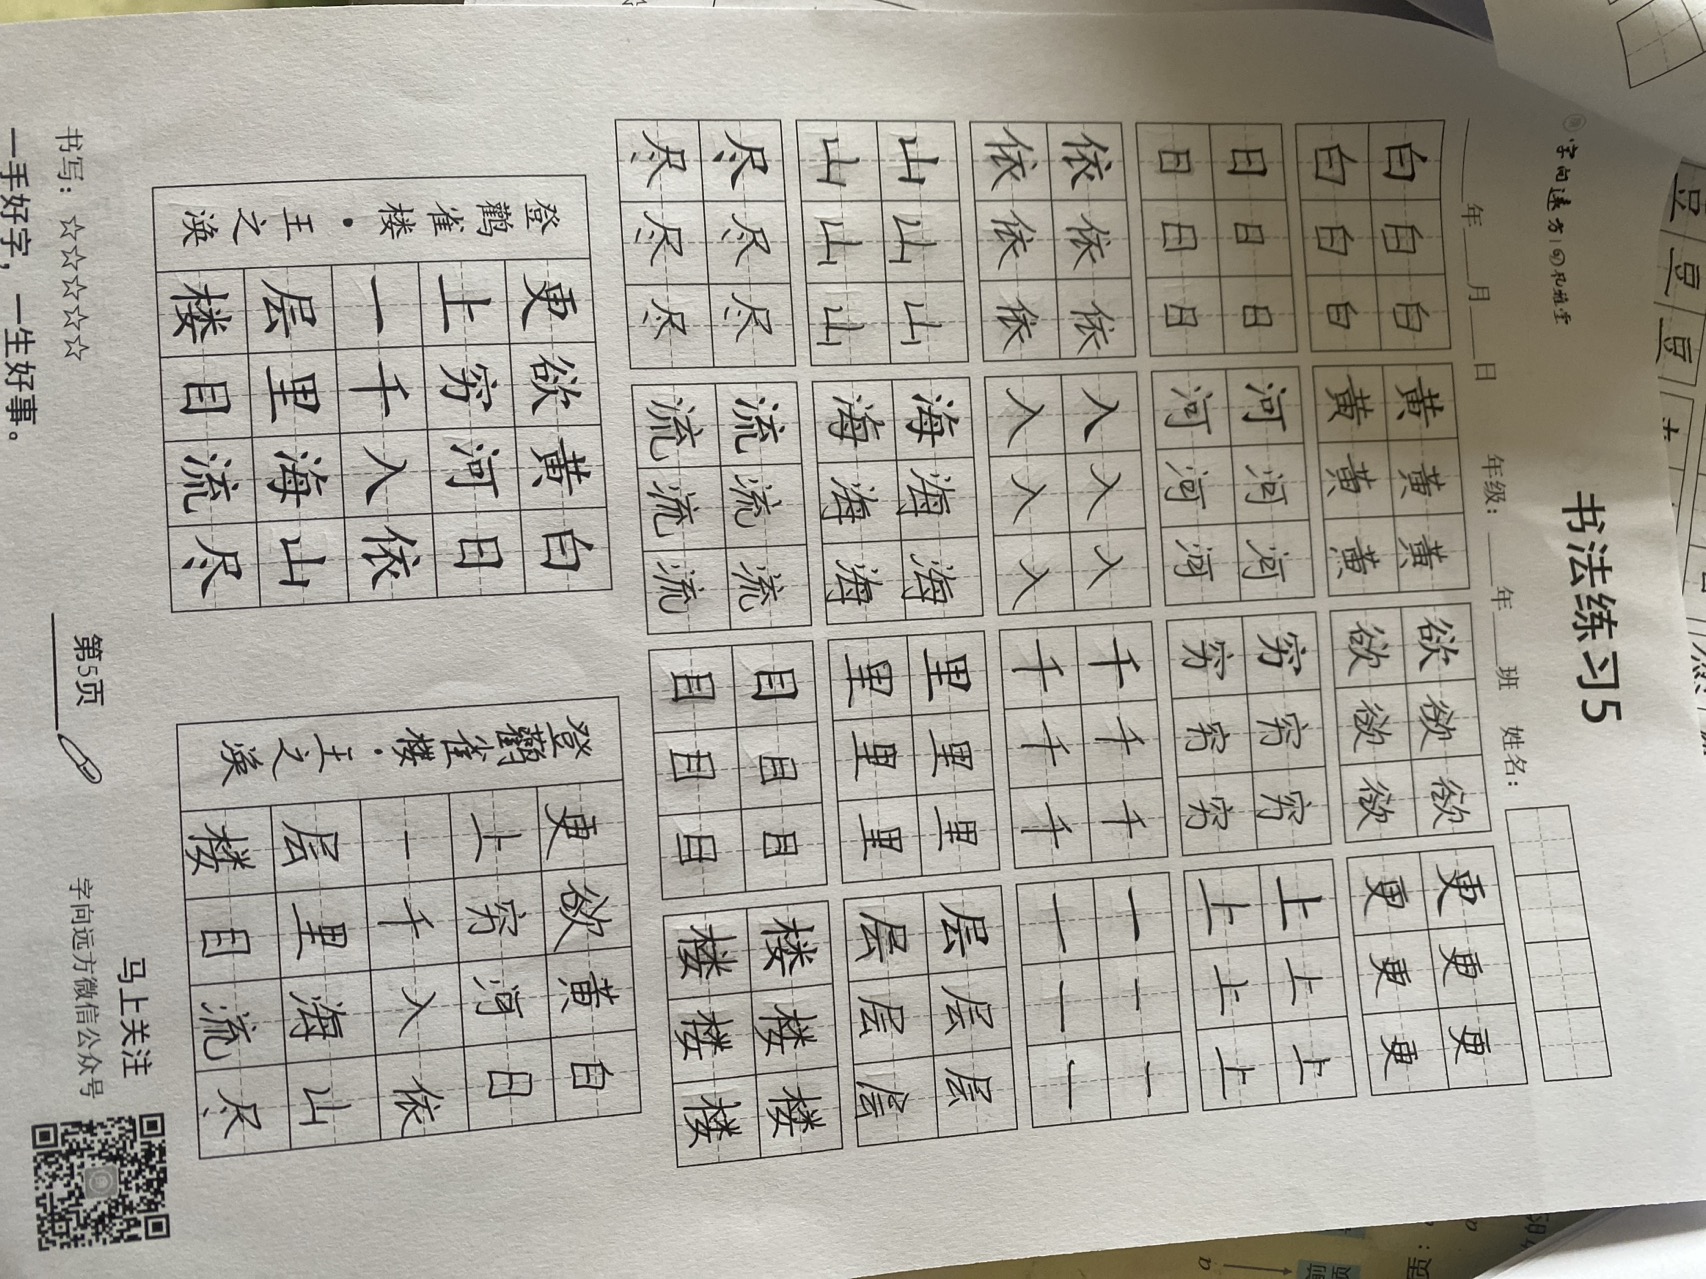 书法练习5
年 月 日 年级: 年 班 姓名:
白白白 黄黄黄 欲欲欲 更更更
白白白 黄黄黄 欲欲欲 更更更
日日日 河河河 穷穷穷 上上上
日日日 河河河 穷穷穷 上上上
依依依 入入入 千千千 一一一
依依依 入入入 千千千 一一一
山山山 海海海 里里里 层层层
山山山 海海海 里里里 层层层
尽尽尽 流流流 目目目 楼楼楼
尽尽尽 流流流 目目目 楼楼楼
白日依山尽
黄河入海流
欲穷千里目
更上一层楼
登鸛雀楼·王之涣
白日依山尽
黄河入海流
欲穷千里目
更上一层楼
登鸛雀楼·王之涣
书写: ☆☆☆☆☆
第5页
马上关注
字向远方微信公众号
一手好字，一生好事。